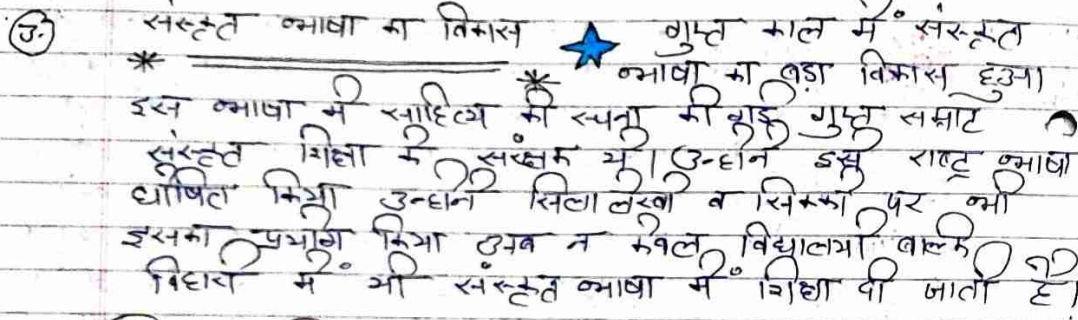 3.
संस्कृत भाषा का विकास गुप्त काल में संस्कृत
भाषा का बड़ा विकास हुआ
इस भाषा में साहित्य की रचना की गई गुप्त सम्राट
संस्कृत शिक्षा के संरक्षक थे। उन्होंने इसे राष्ट्र भाषा
घोषित किया उन्होंने सिलालेखों व सिक्कों पर भी
इसका प्रयोग किया अब न केवल विद्यालयों बल्कि
विहारों में भी संस्कृत भाषा में शिक्षा दी जाती है।